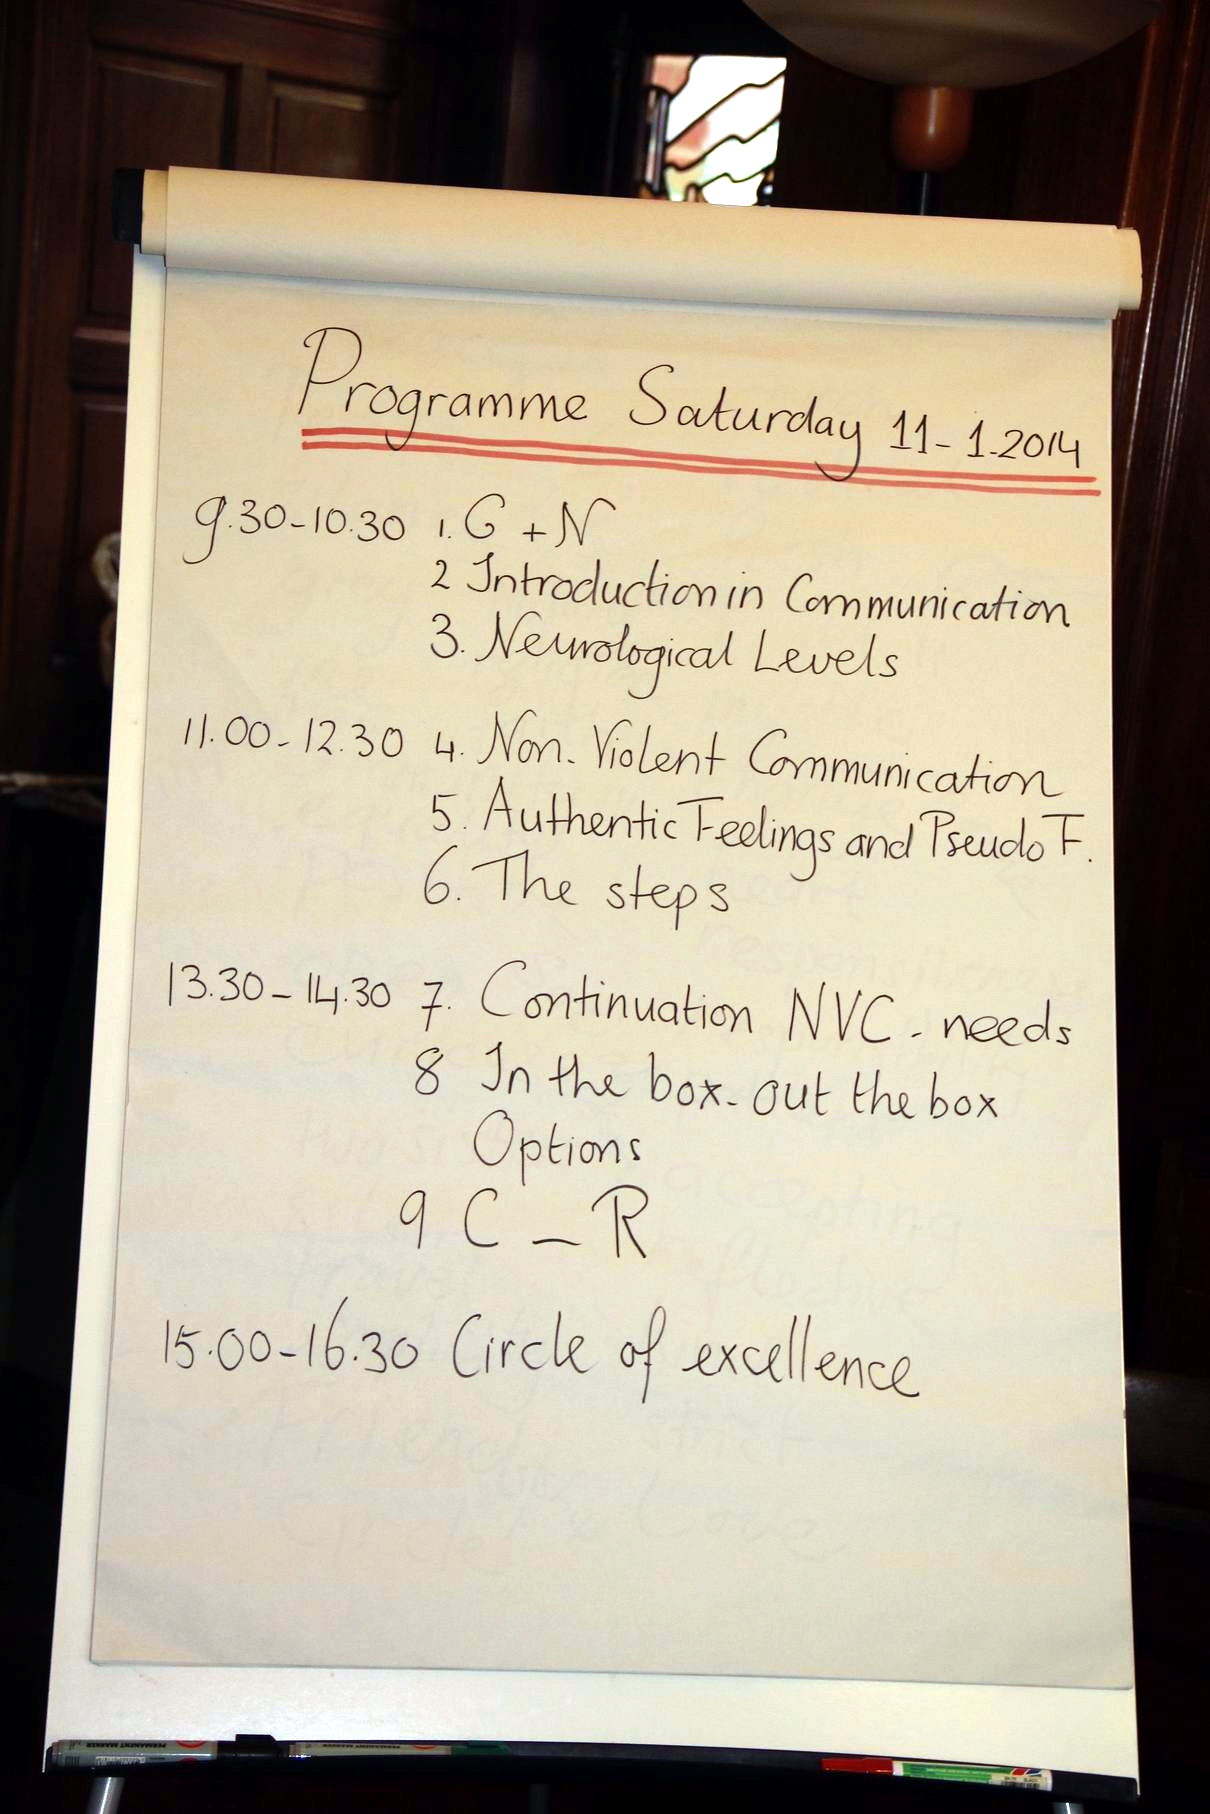 Programme Saturday 11-1-2014
9.30-10.30 1. G + N
2 Introduction in Communication
3. Neurological Levels
11.00-12.30 4. Non-Violent Communication
5. Authentic Feelings and Pseudo F.
6. The steps
13.30-14.30 7. Continuation NVC - needs
8 In the box - out the box
Options
9 C - R
15.00-16.30 Circle of excellence
PERMANENT MARKER